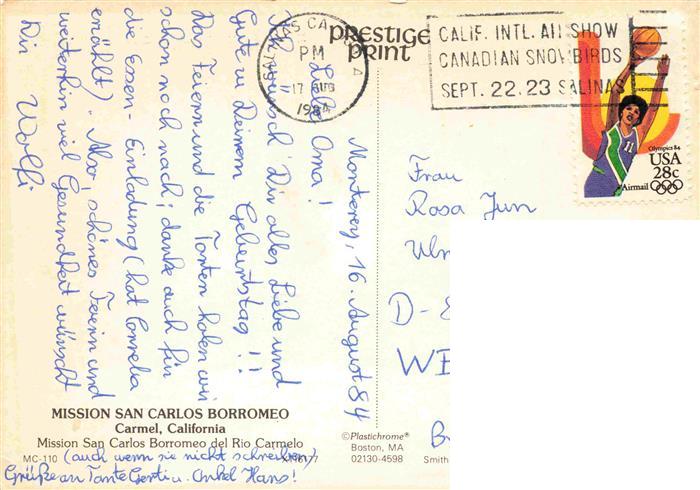 Monterey, 16. August 84
Liebe Oma!
Ich wünsch' Dir alles Liebe und
Gute zu Deinem Geburtstag!!
Das Feiern und die Torten holen wir
schon noch nach; danke auch für
die Essen-Einladung (hat Cornelia
erzählt). Also, schönes Feiern und
weiterhin viel Gesundheit wünscht
Dir Wolfi
(auch wenn sie nicht schreiben)
Grüße an Tante Gerti u. Onkel Hans!
PRESTIGE
PRINT
SALINAS CA
PM
17 AUG
1984
CALIF. INTL. AIR SHOW
CANADIAN SNOWBIRDS
SEPT. 22.23 SALINAS
Olympics 84
USA
28c
Airmail
11
Frau
Rosa Jun
Ulm
D-8
WE
MISSION SAN CARLOS BORROMEO
Carmel, California
Mission San Carlos Borromeo del Rio Carmelo
MC-110
©Plastichrome®
Boston, MA
02130-4598
Smith